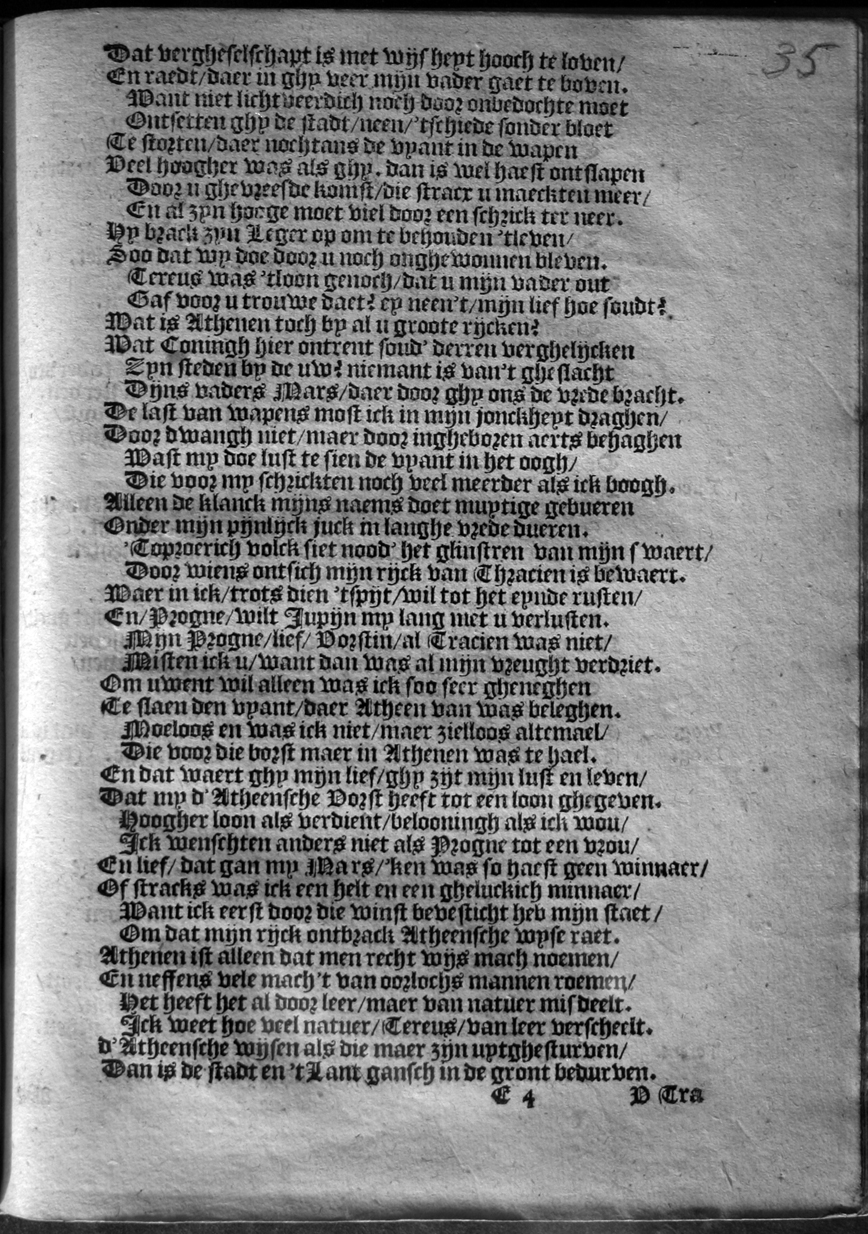 35
Dat vergheselschapt is met wijsheyt hooch te loven/
En raedt/daer in ghy veer mijn vader gaet te boven.
Want niet lichtveerdich noch door onbedochte moet
Ontsetten ghy de stadt/neen/'tschiede sonder bloet
Te storten/daer nochtans de vyant in de wapen
Veel hoogher was als ghy. dan is wel haest ontslapen
Door u ghevreesde komst/die stracx u maeckten meer/
En al zyn hooge moet viel door een schrick ter neer.
Hy brack zyn Leger op om te behouden 'tleven/
Soo dat wy doe door u noch onghewonnen bleven.
Tereus was 'tloon genoch/dat u mijn vader out
Gaf voor u trouwe daet? ey neen't/mijn lief hoe soudt?
Wat is Athenen toch by al u groote rijcken?
Wat Coningh hier ontrent soud' derren verghelijcken
Zyn steden by de uw? niemant is van't gheslacht
Dijns vaders Mars/daer door ghy ons de vrede bracht.
De last van wapens most ick in mijn jonckheyt draghen/
Door dwangh niet/maer door ingheboren aerts behaghen
Wast my doe lust te sien de vyant in het oogh/
Die voor my schrickten noch veel meerder als ick boogh.
Alleen de klanck mijns naems doet muytige gebueren
Onder mijn pijnlijck juck in langhe vrede dueren.
'Toproerich volck siet nood' het glinstren van mijn swaert/
Door wiens ontsich mijn rijck van Thracien is bewaert.
Waer in ick/trots dien 'tspijt/wil tot het eynde rusten/
En/Progne/wilt Jupijn my lang met u verlusten.
Mijn Progne/lief/ Vorstin/al Tracien was niet/
Misten ick u/want dan was al mijn vreught verdriet.
Om uwent wil alleen was ick soo seer gheneghen
Te slaen den vyant/daer Atheen van was beleghen.
Moeloos en was ick niet/maer zielloos altemael/
Die voor die borst maer in Athenen was te hael.
En dat waert ghy mijn lief/ghy zijt mijn lust en leven/
Dat my d'Atheensche Vorst heeft tot een loon ghegeven.
Hoogher loon als verdient/belooningh als ick wou/
Ick wenschten anders niet als Progne tot een vrou/
En lief/ dat gan my Mars/'ken was so haest geen winnaer/
Of stracks was ick een helt en een gheluckich minnaer/
Want ick eerst door die winst bevesticht heb mijn staet/
Om dat mijn rijck ontbrack Atheensche wyse raet.
Athenen ist alleen dat men recht wijs mach noemen/
En neffens vele mach't van oorlochs mannen roemen/
Het heeft het al door leer/maer van natuer misdeelt.
Ick weet hoe veel natuer/Tereus/van leer verscheelt.
d'Atheensche wijsen als die maer zijn uytghesturven/
Dan is de stadt en 't Lant gansch in de gront bedurven.
E 4 D Tra